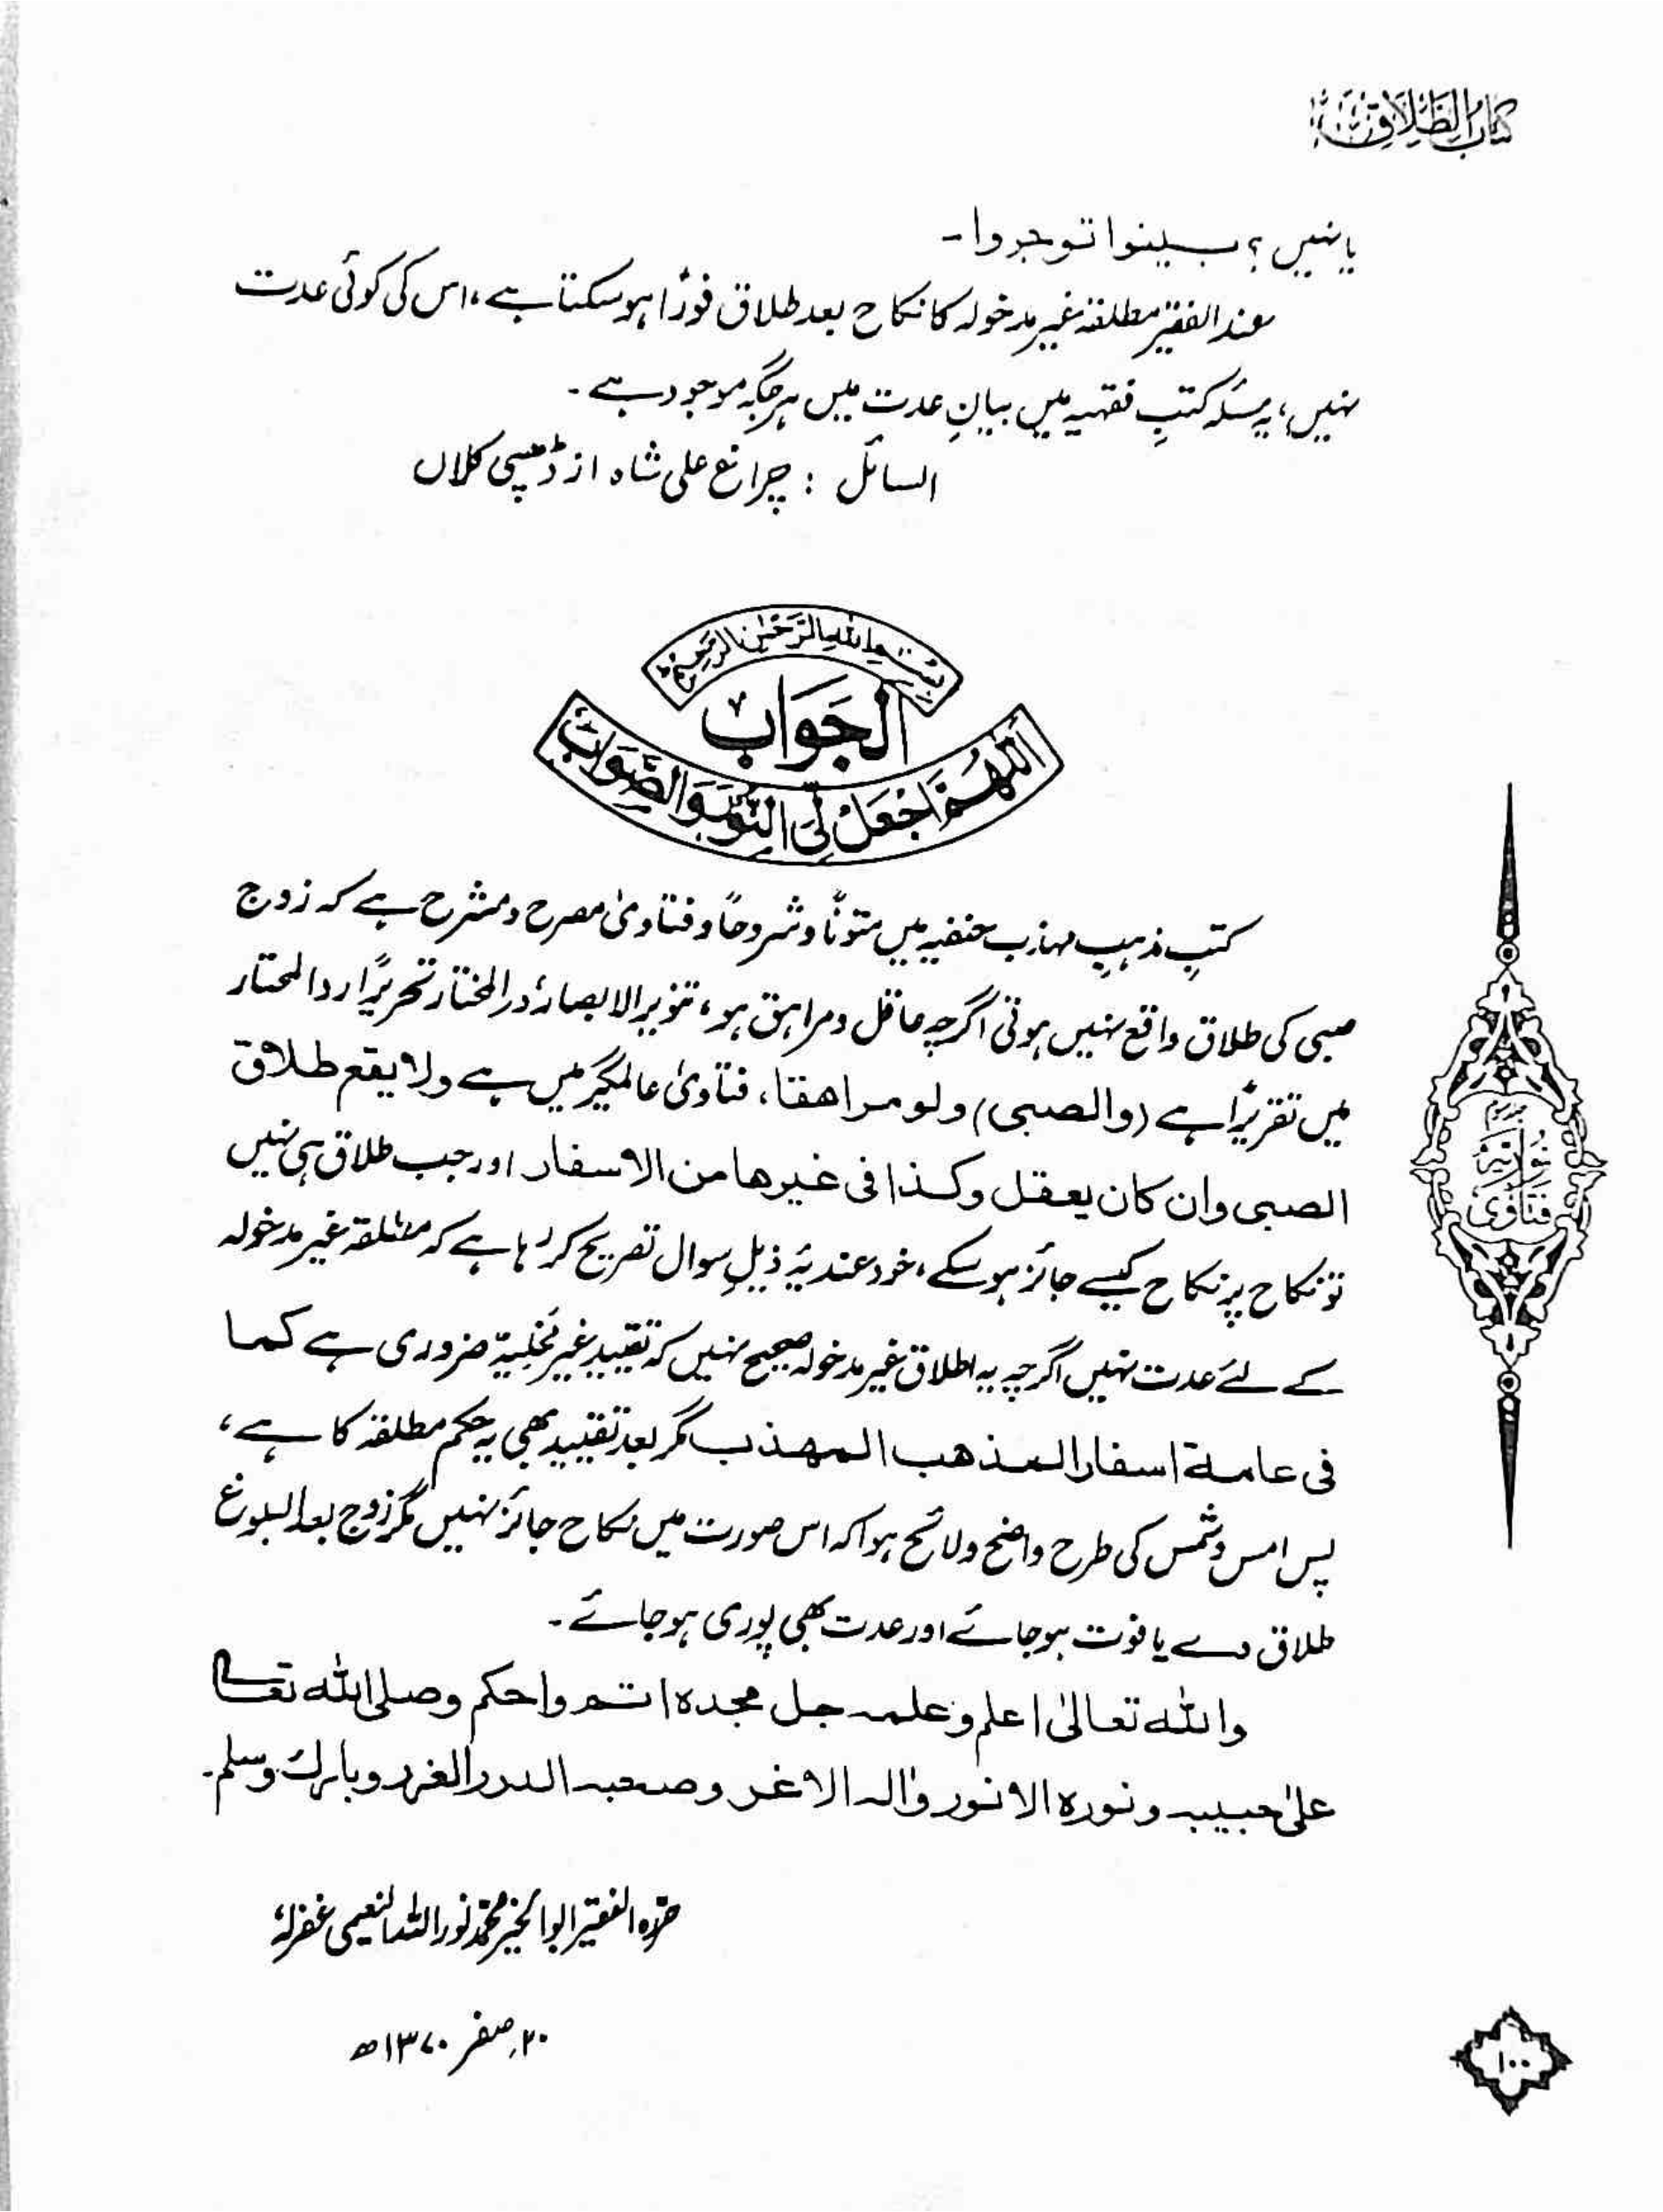 کتاب الطلاق
یا نہیں؟ بینوا توجروا۔
عند الفقیر مطلقہ غیر مدخولہ کا نکاح بعد طلاق فوراً ہو سکتا ہے، اس کی کوئی عدت
نہیں، یہ مسئلہ کتبِ فقہیہ میں بیانِ عدت میں ہر جگہ موجود ہے۔
السائل : چراغ علی شاہ از ڈھپئی کلاں
بِسْمِ اللهِ الرَّحْمٰنِ الرَّحِيْمِ
اَلْجَوَابُ
اَللّٰهُمَّ اجْعَلْ لِّيَ النُّوْرَ وَالصَّوَابَ
کتبِ مذہبِ مہذب حنفیہ میں متوناً و شروحاً و فتاویٰ مصرح و مشرح ہے کہ زوج
صبی کی طلاق واقع نہیں ہوتی اگرچہ عاقل و مراہق ہو، تنویر الابصار، در المختار تحریراً ردالمحتار
میں تقریراً ہے (والصبی) ولو مراھقا، فتاویٰ عالمگیر میں ہے ولا یقع طلاق
الصبی وان کان یعقل وکذا فی غیرھا من الاسفار اور جب طلاق ہی نہیں
تو نکاح پر نکاح کیسے جائز ہو سکے، خود عندیۂ ذیلِ سوال تصریح کر رہا ہے کہ مطلقہ غیر مدخولہ
کے لئے عدت نہیں اگرچہ یہ اطلاق غیر مدخولہ صحیح نہیں کہ تقیید غیر مخلیہ ضروری ہے کما
فی عامۃ اسفار المذھب المھذب مگر بعد تقیید بھی یہ حکم مطلقہ کا ہے،
پس امس و شمس کی طرح واضح و لائح ہوا کہ اس صورت میں نکاح جائز نہیں مگر زوج بعد البلوغ
طلاق دے یا فوت ہو جائے اور عدت بھی پوری ہو جائے۔
واللہ تعالیٰ اعلم وعلمہ جل مجدہ اتم واحکم وصلی اللہ تعالیٰ
علیٰ حبیبہ ونورہ الانور واٰلہ الاغر وصحبہ الدرر الغرر وبارک وسلم۔
حررہ الفقیر ابو الخیر محمد نور اللہ النعیمی غفرلہٗ
۲۰، صفر ۱۳۷۰ھ
فتاویٰ نوریہ
۱۰۰